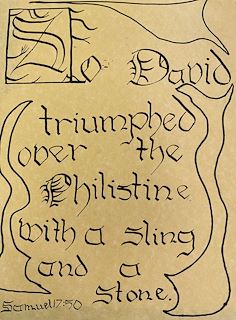 So David
triumphed
over the
Philistine
with a sling
and a
stone.
Samuel 17:50